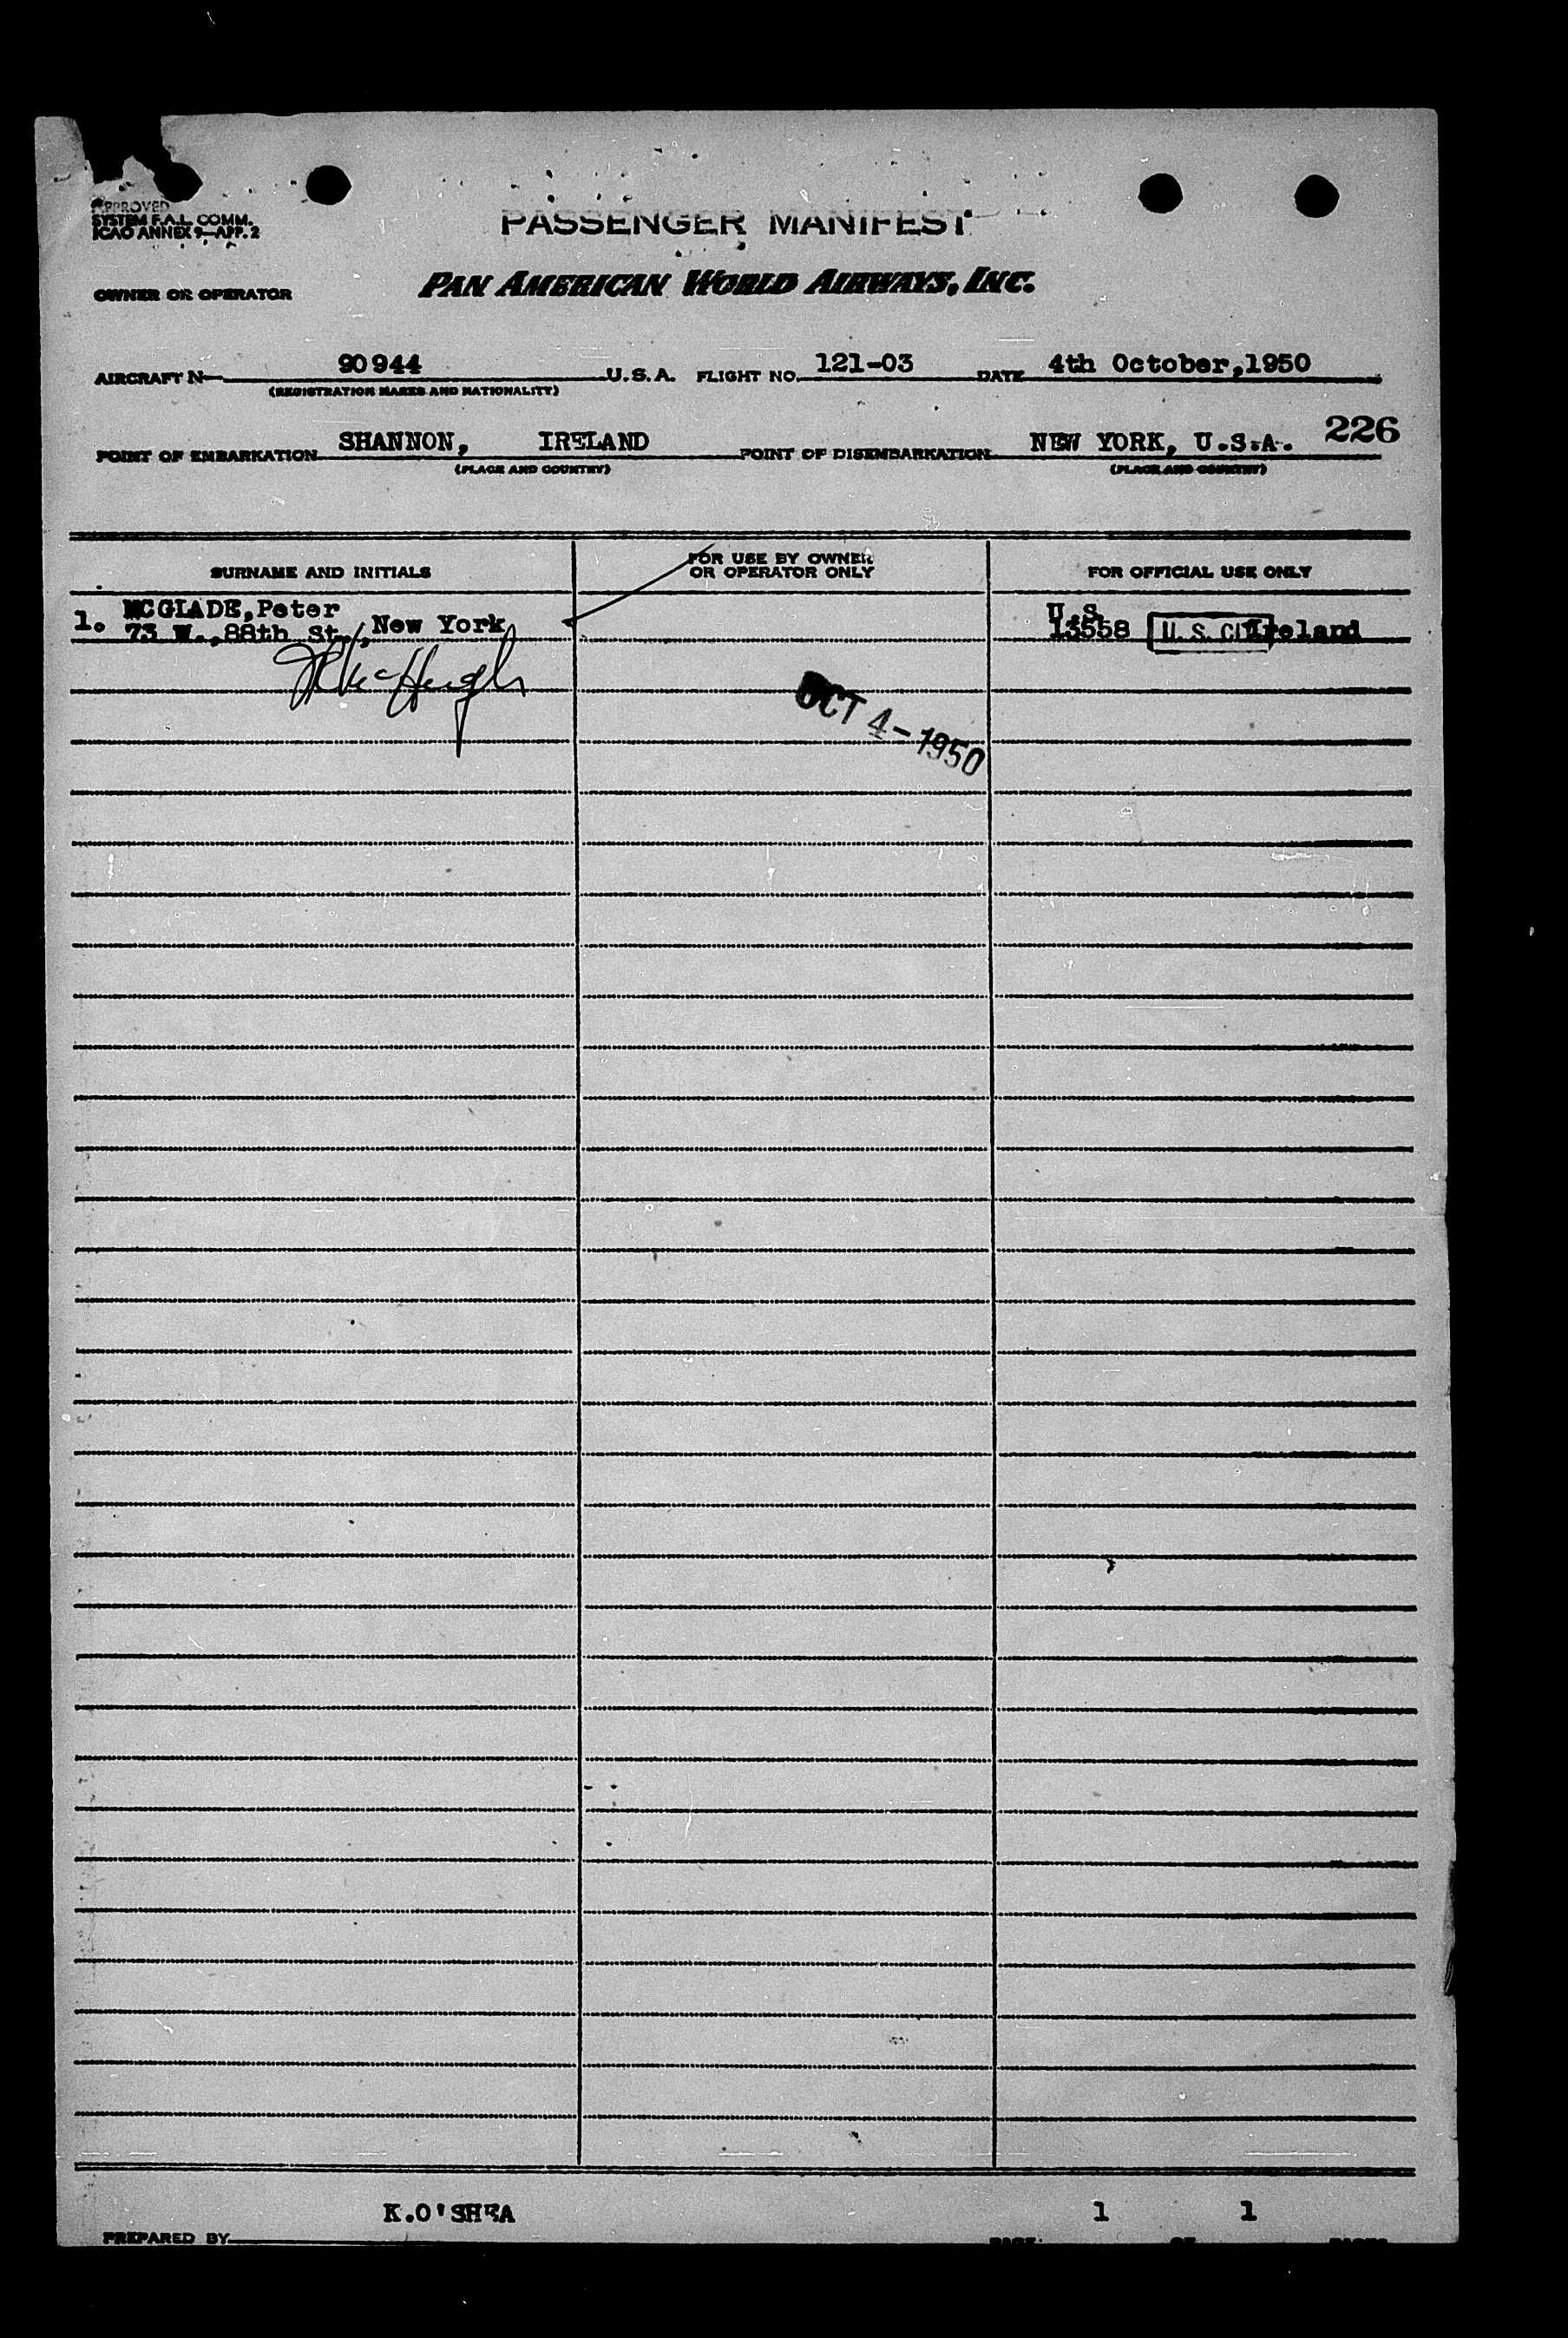 APPROVED
SYSTEM F.A.L. COMM.
ICAO ANNEX 9—APP. 2
PASSENGER MANIFEST
OWNER OR OPERATOR PAN AMERICAN WORLD AIRWAYS, INC.
AIRCRAFT N— 90944 U.S.A. FLIGHT NO. 121-03 DATE 4th October,1950
(REGISTRATION MARKS AND NATIONALITY)
226
POINT OF EMBARKATION SHANNON, IRELAND POINT OF DISEMBARKATION NEW YORK, U.S.A.
(PLACE AND COUNTRY) (PLACE AND COUNTRY)
SURNAME AND INITIALS FOR USE BY OWNER OR OPERATOR ONLY FOR OFFICIAL USE ONLY
1. MCGLADE,Peter U.S.
73 W.,88th St., New York 13558 U. S. CIT Ireland
McHugh
OCT 4-1950
K.O'SHEA 1 1
PREPARED BY PAGE OF PAGES